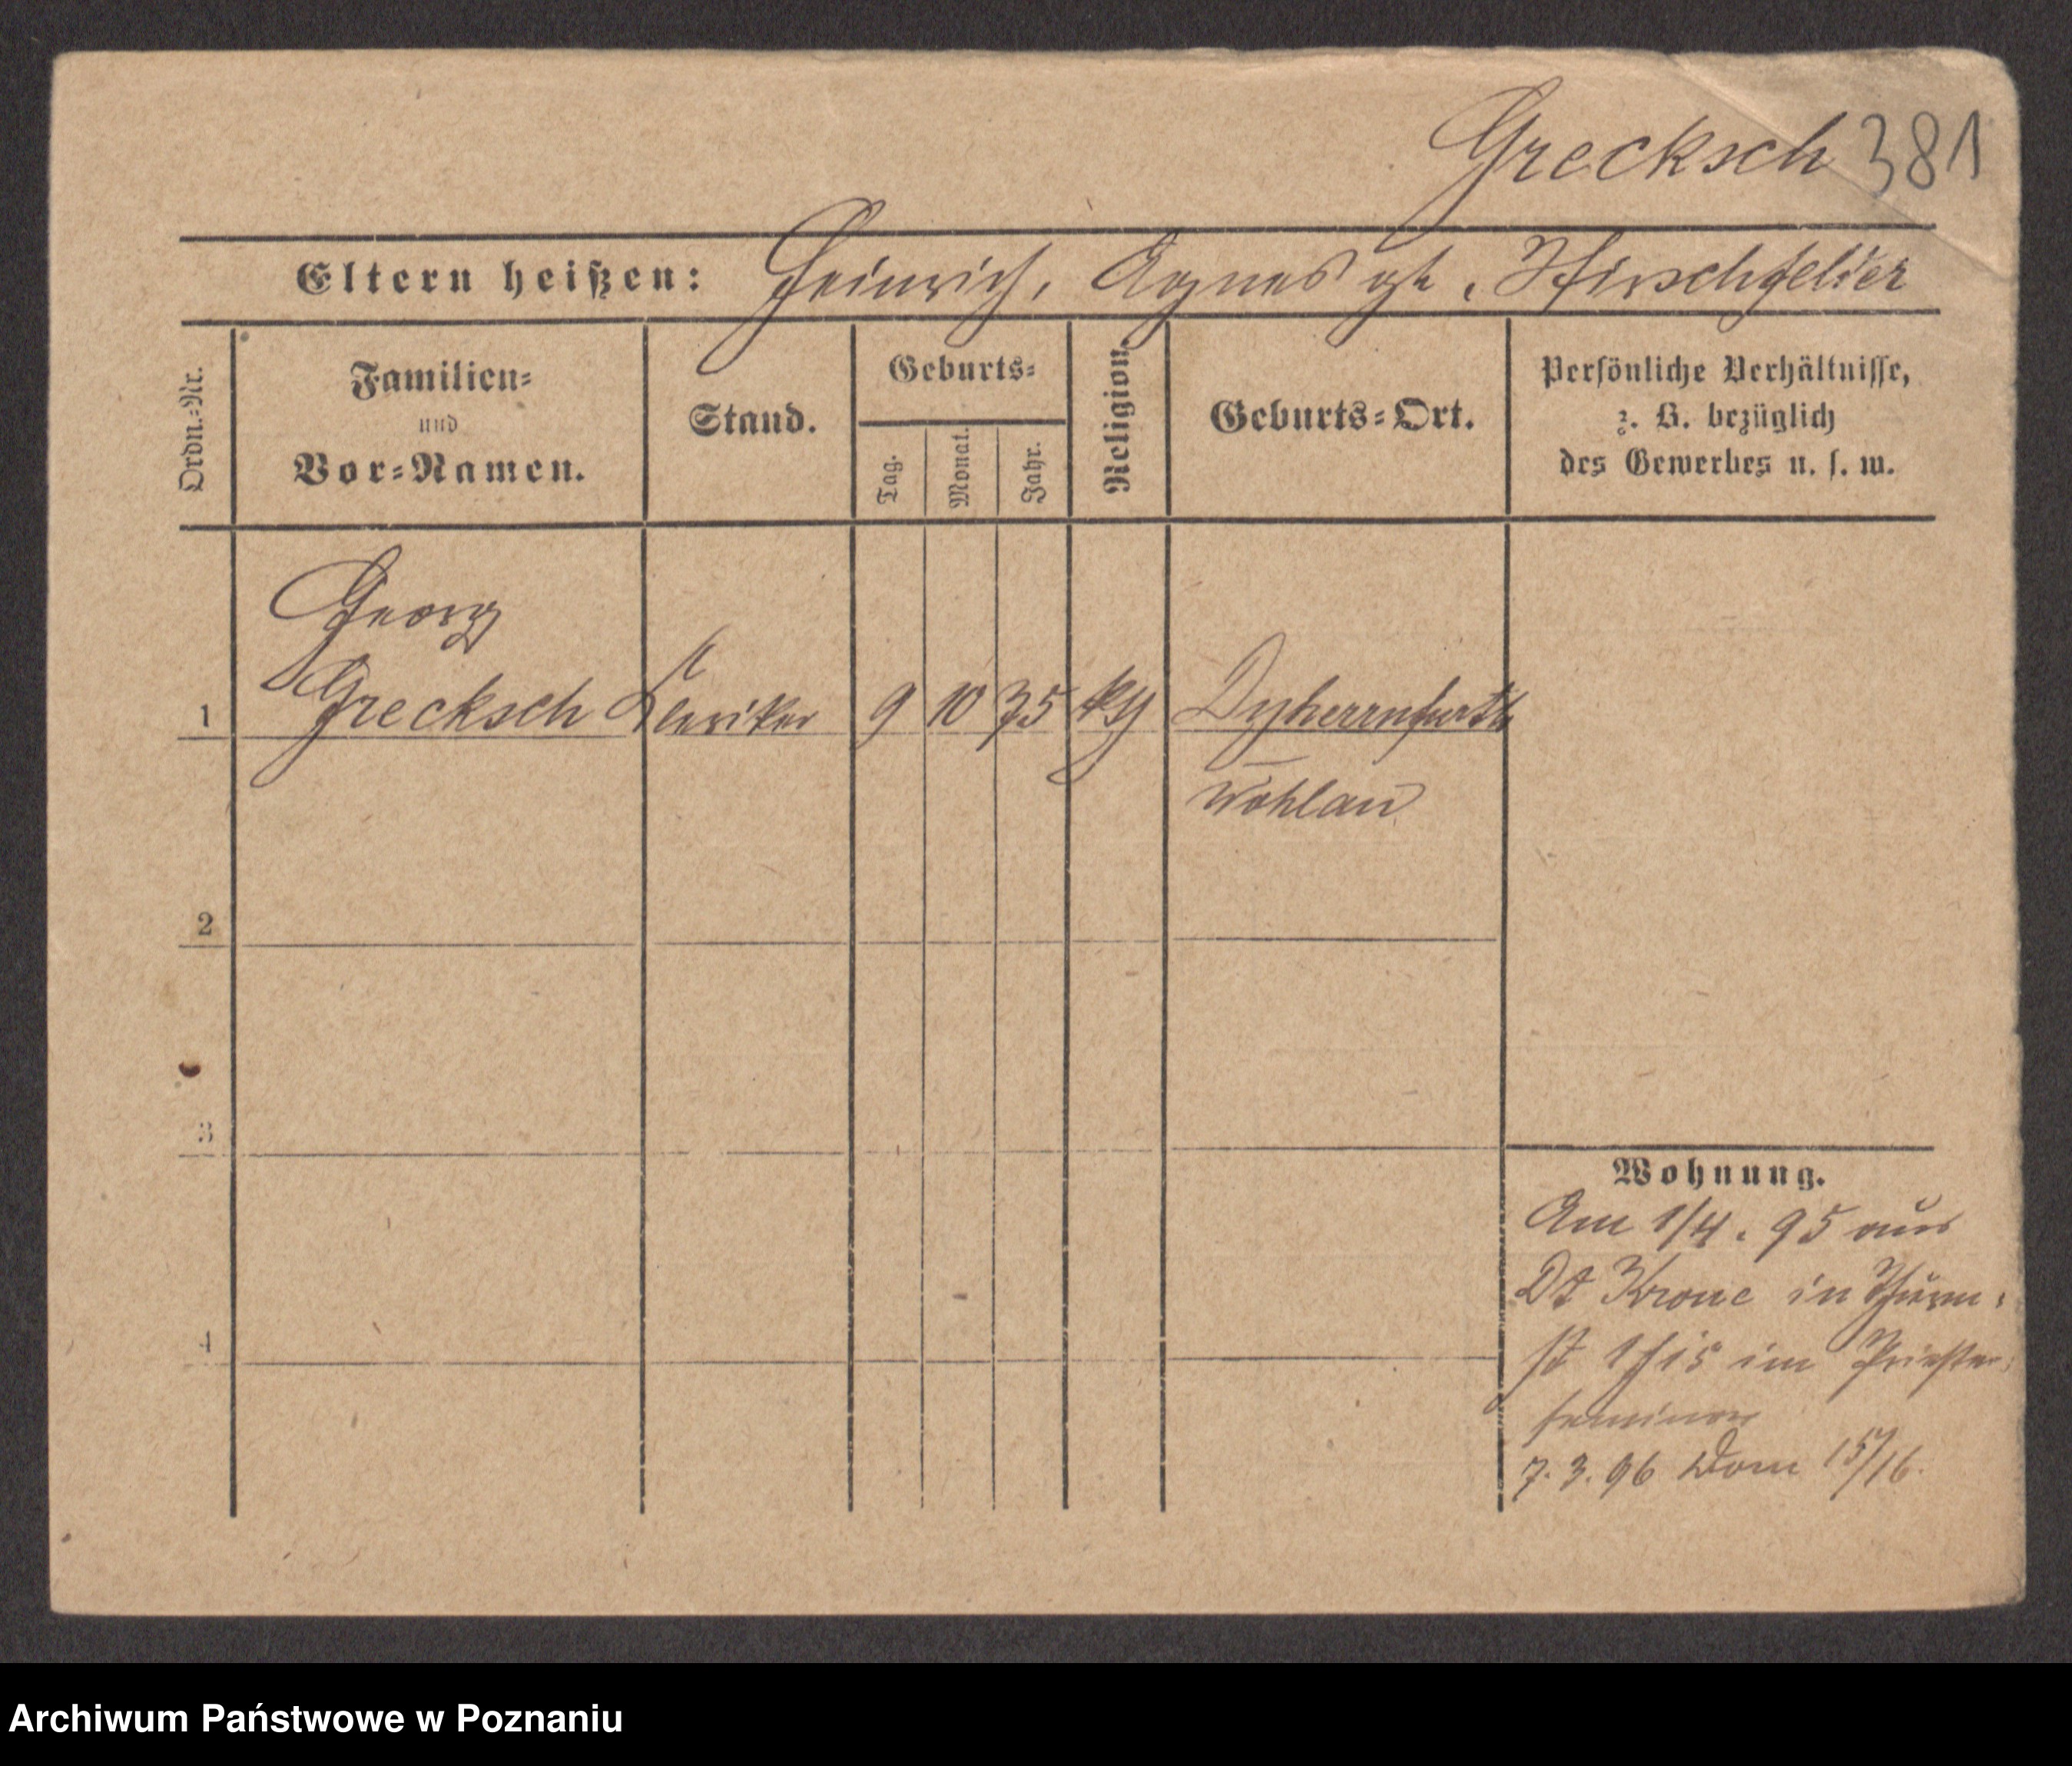 Grecksch 381
Eltern heißen: Heinrich, Agnes geb. Hirschfelder
Ordn.-Nr.
Familien-
und
Vor-Namen.
Stand.
Geburts-
Tag.
Monat.
Jahr.
Religion.
Geburts-Ort.
Persönliche Verhältnisse,
z. B. bezüglich
des Gewerbes u. s. w.
Georg
1 Grecksch Kleriker 9 10 75 kth Dyherrnfurth
Wohlau
2
3
4
Wohnung.
Am 1/4. 95 aus
Dt Krone in Thurm-
st im Priester-
seminar
7. 3. 96 Dom 15/16.
Archiwum Państwowe w Poznaniu